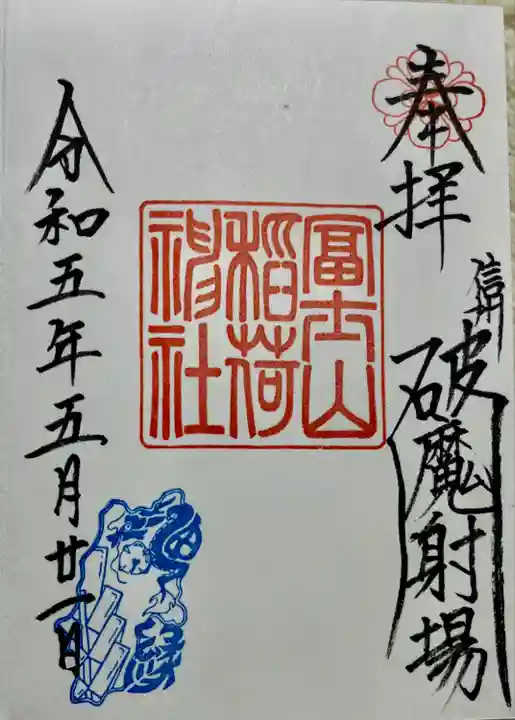 奉拝
信州
破魔射場
冨士山
稲荷
神社
令和五年五月廿一日